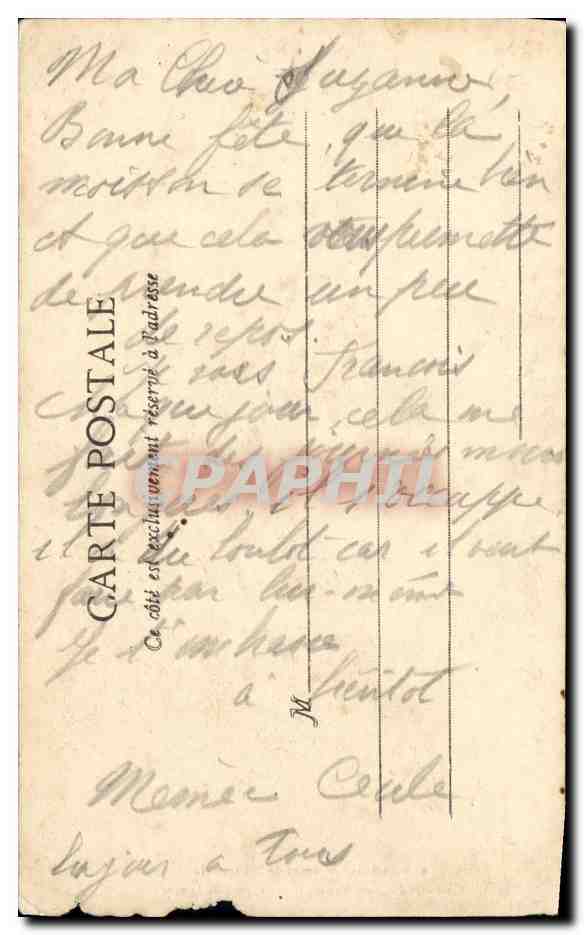 Ma Chère Suzanne,
Bonne fête, que la
moisson se termine bien
et que cela vous permette
de prendre un peu
de repos.
Je vois François
chaque jour, cela me
fait des journées moins
il s'occupe,
il car il veut
faire par lui-même
Je t'embrasse
à bientôt
Mémée Cecile
bonjour a Tous
CARTE POSTALE
Ce côté est exclusivement réservé à l'adresse
M
CPAPHIL